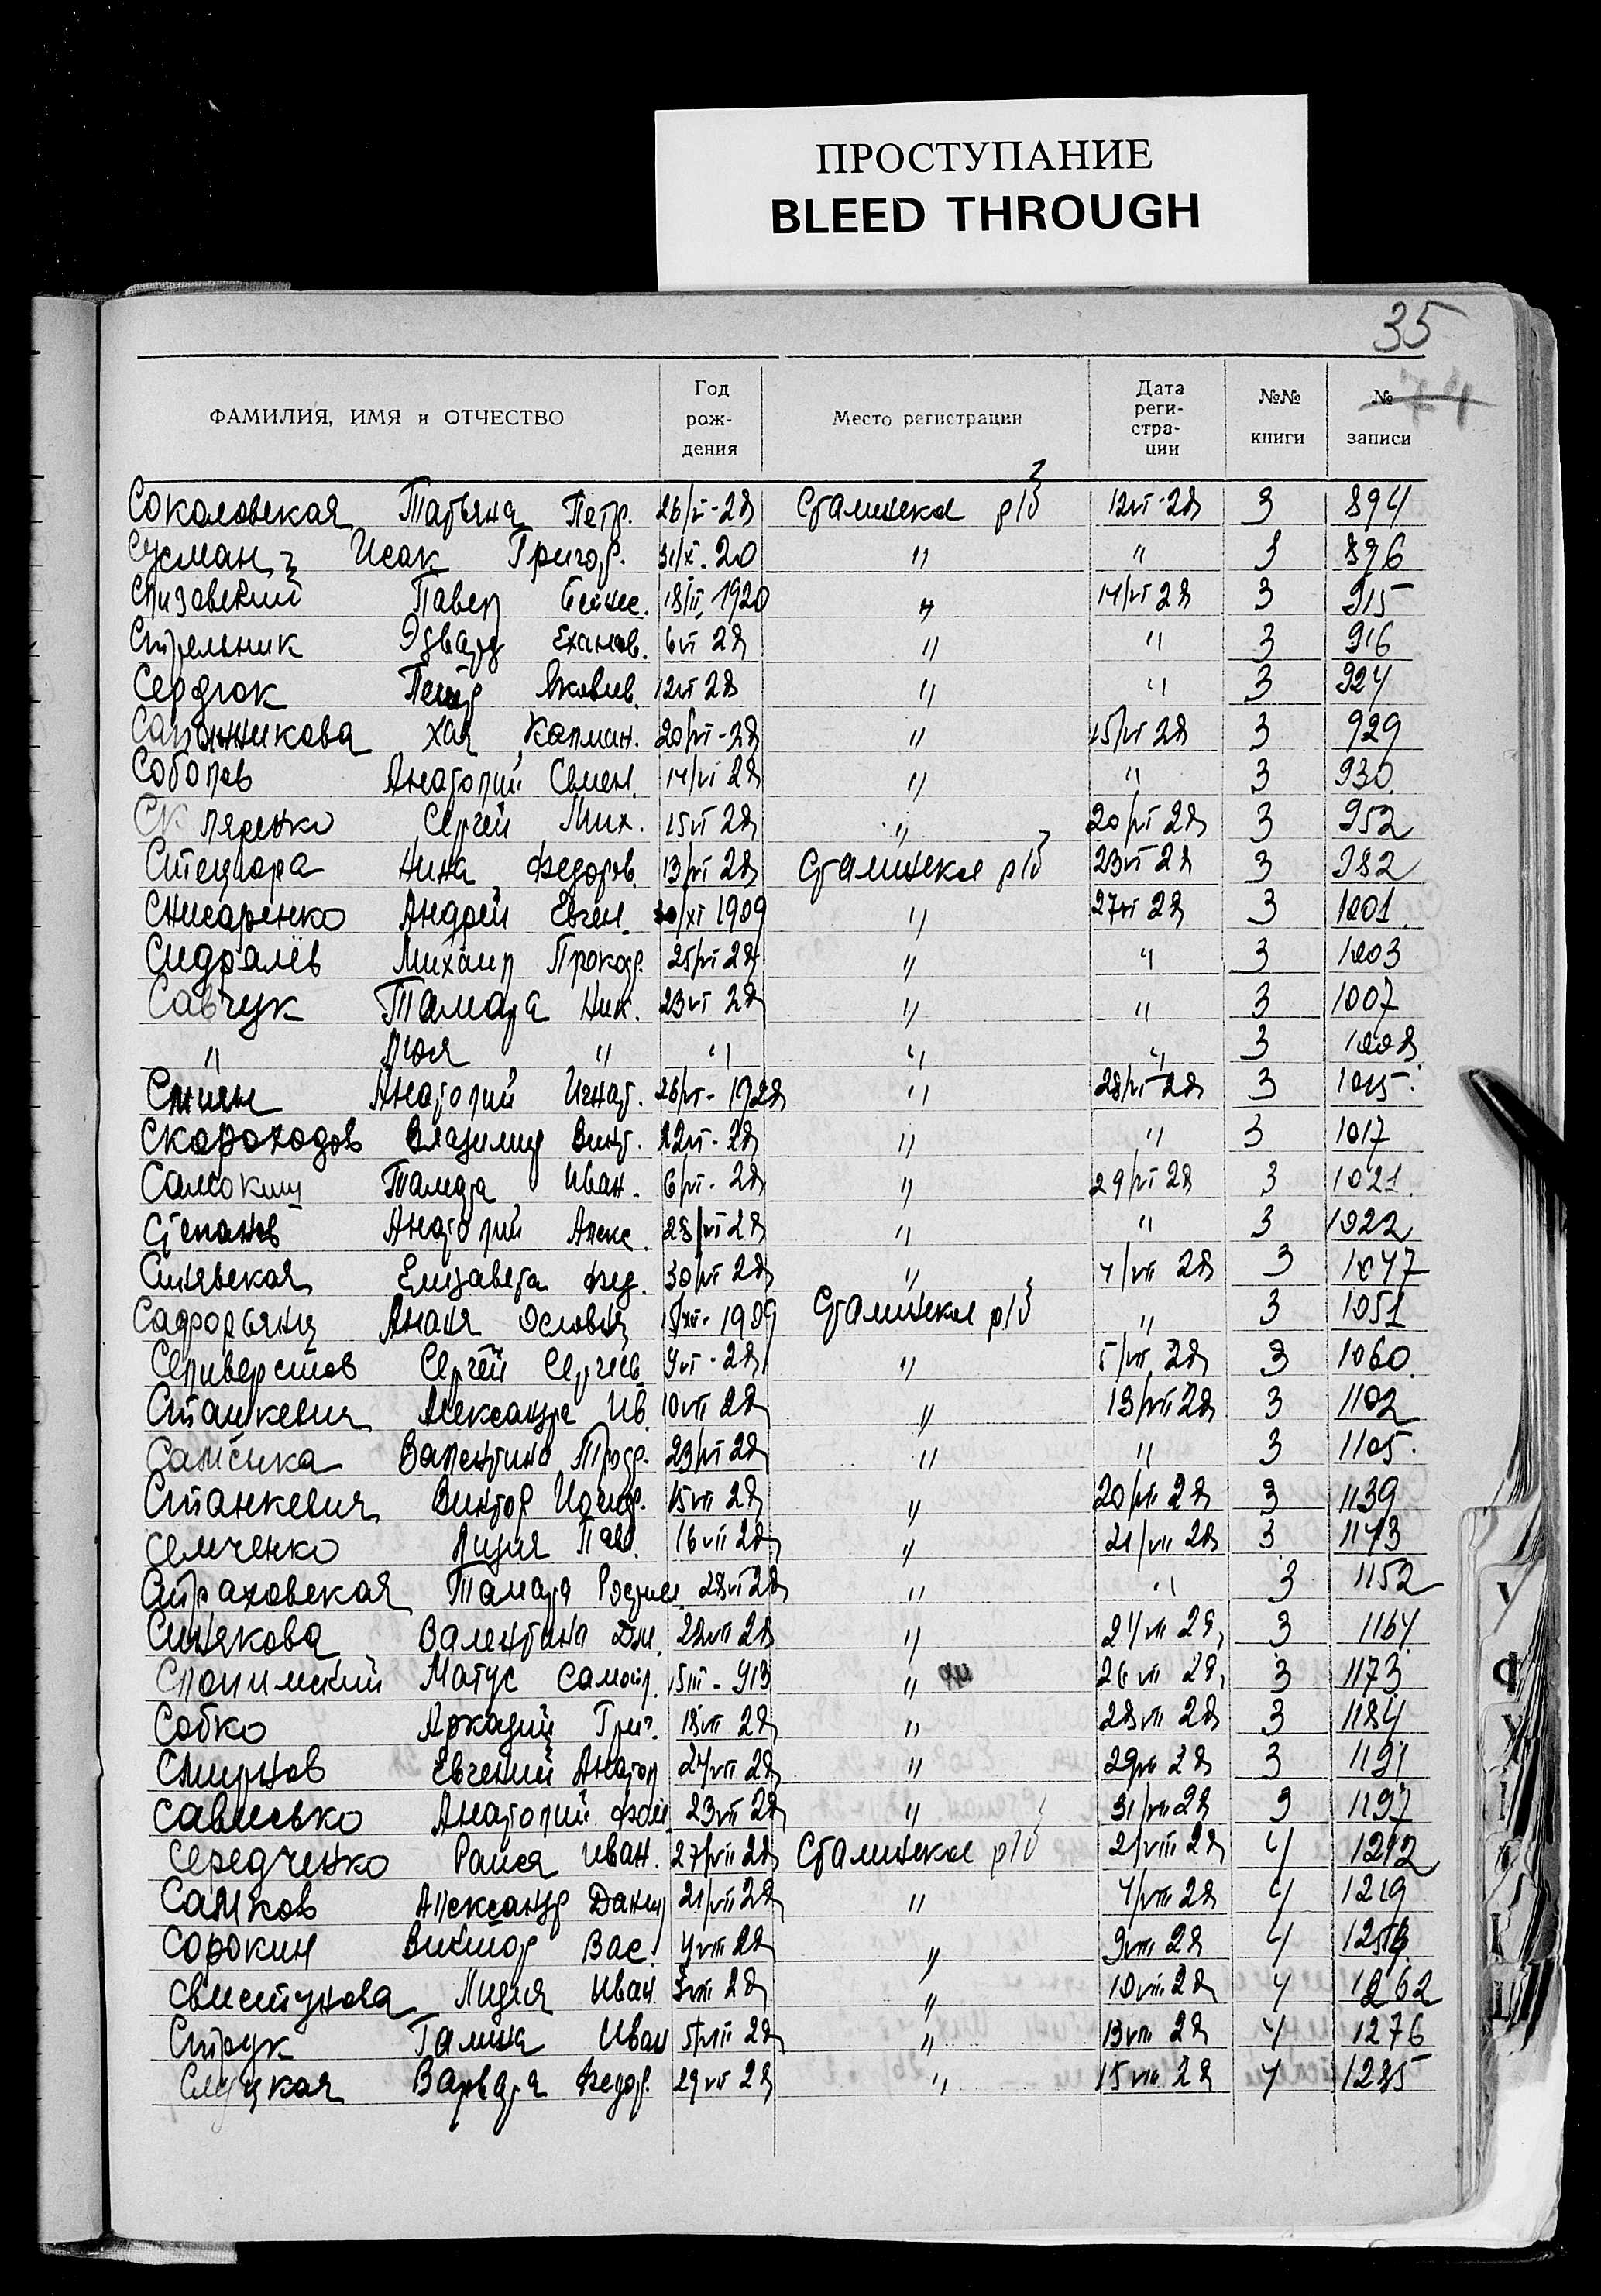 ПРОСТУПАНИЕ
BLEED THROUGH
35
ФАМИЛИЯ, ИМЯ и ОТЧЕСТВО Год рож-дения Место регистрации Дата реги-стра-ции №№ книги № записи
Соколовская Татьяна Петр. 26/V-28 Сталинское р/б 12VI-28 3 894
Сусман Исак Григор. 31/X.20 " " 3 896
Павел 18/II 1920 " 14/VI 28 3 915
Стрельник Эдвард 6VI 28 " " 3 916
Сердюк Петр Яковлев. 12VI 28 " " 3 924
Сапожникова Хая Калман. 20/VI-28 " 15/VI 28 3 929
Соболев Анатолий Семен. 14/VI 28 " " 3 930
Скляренко Сергей Мих. 15VI 28 " 20/VI 28 3 952
Стецюра Нина Федоров. 13/VI 28 Сталинское р/б 23VI 28 3 982
Снисаренко Андрей Евген. /XI 1909 " 27VI 28 3 1001
Сидралёв Михаил Прокоф. 25/VI 28 " " 3 1003
Савчук Тамара Ник. 23VI 28 " " 3 1007
" Люся " " " " 3 1008
Анатолий Игнат. 26/VI-1928 " 28/VI-28 3 1015
Скороходов Владимир Викт. 22VI-28 " " 3 1017
Самокиш Тамара Иван. 6/VI-28 " 29/VI 28 3 1021
Степанов Анатолий Алекс. 28/VI 28 " " 3 1022
Синявская Елизавета Фед. 30/VI 28 " 4/VII 28 3 1047
Сафарьянц 1909 Сталинское р/б " 3 1051
Селиверстов Сергей Сергеев. 9VI-28 " 5/VII 28 3 1060
Станкевич Александра Ив. 10VII 28 " 13/VII 28 3 1102
Самсыка Валентина Троф. 23/VI 28 " " 3 1105
Станкевич Виктор 15VII 28 " 20/VII 28 3 1139
Семченко Лидия Павл. 16VII 28 " 21/VII 28 3 1143
Страховская Тамара 28VI 28 " " 3 1152
Синякова Валентина Дм. 22VII 28 " 24VII 28 3 1164
Матус Самойл. 15III-913 " 26VII 28 3 1173
Собко Аркадий Григ. 18VII 28 " 28VII 28 3 1184
Смирнов Евгений Анатол 24VII 28 " 29VII 28 3 1191
Сависько Анатолий 23VII 28 " 31/VII 28 3 1197
Середченко Раися Иван. 27/VII 28 Сталинское р/б 2/VIII 28 4 1212
Самков Александр Данил 21/VII 28 " 4/VIII 28 4 1219
Сорокин Виктор Вас. 4VIII 28 " 9VIII 28 4
Свистунова Лидия Иван. 3VIII 28 " 10VIII 28 4 1262
Струк Галина Иван 5/VIII 28 " 13VIII 28 4 1276
Слуцкая Варвара Федор. 29VII 28 " 15VIII 28 4 1285